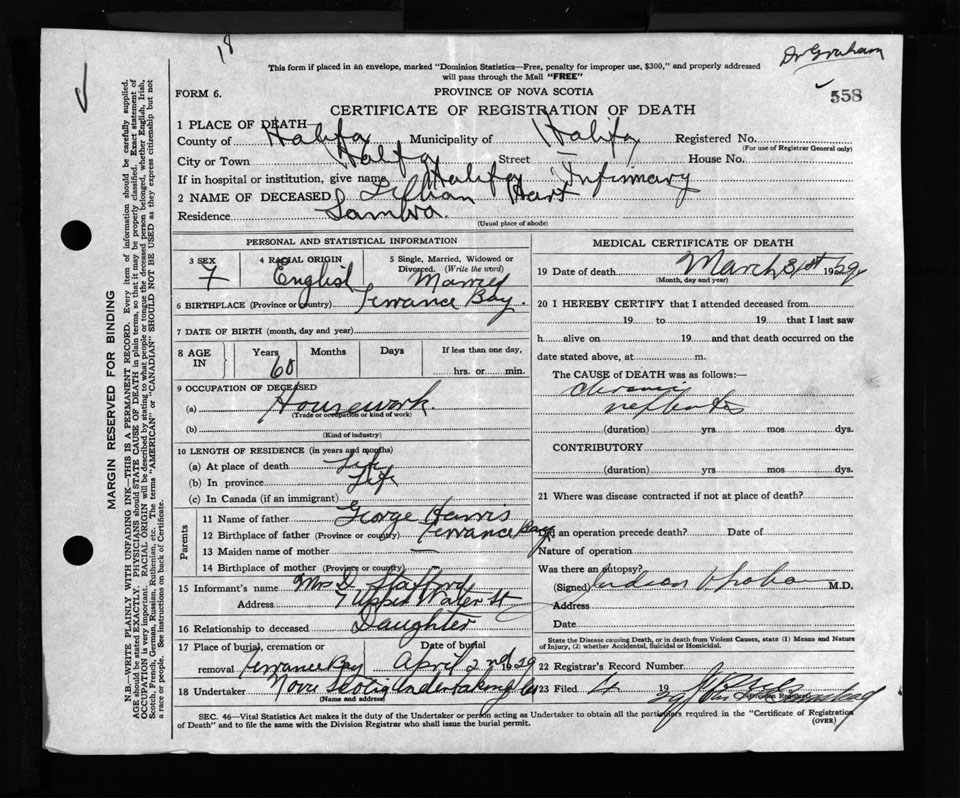 18
Dr Graham
This form if placed in an envelope, marked "Dominion Statistics—Free, penalty for improper use, $300," and properly addressed
will pass through the Mail "FREE"
FORM 6.
PROVINCE OF NOVA SCOTIA
558
CERTIFICATE OF REGISTRATION OF DEATH
1 PLACE OF DEATH
County of Halifax Municipality of Halifax Registered No.
(For use of Registrar General only)
City or Town Halifax Street House No.
If in hospital or institution, give name Halifax Infirmary
2 NAME OF DECEASED Lillian Hart
Residence Sambro.
(Usual place of abode)
PERSONAL AND STATISTICAL INFORMATION
3 SEX 4 RACIAL ORIGIN 5 Single, Married, Widowed or
Divorced. (Write the word)
F English Married
6 BIRTHPLACE (Province or country) Terrance Bay.
7 DATE OF BIRTH (month, day and year)
8 AGE IN Years Months Days If less than one day,
60 hrs. or min.
9 OCCUPATION OF DECEASED
(a) Housework.
(Trade or occupation or kind of work)
(b)
(Kind of industry)
10 LENGTH OF RESIDENCE (in years and months)
(a) At place of death Life
(b) In province Life
(c) In Canada (if an immigrant)
Parents
11 Name of father George Harris
12 Birthplace of father (Province or country) Terrance Bay
13 Maiden name of mother —
14 Birthplace of mother (Province or country)
15 Informant's name Mrs D Stafford
Address 7 Upper Water St
16 Relationship to deceased Daughter
17 Place of burial, cremation or Date of burial
removal Terrance Bay April 2nd 1929
18 Undertaker Nova Scotia Undertaking Co
(Name and address)
MEDICAL CERTIFICATE OF DEATH
19 Date of death March 31st 1929
(Month, day and year)
20 I HEREBY CERTIFY that I attended deceased from
19 to 19 that I last saw
h alive on 19 and that death occurred on the
date stated above, at m.
The CAUSE of DEATH was as follows:
chronic
nephritis
(duration) yrs mos dys.
CONTRIBUTORY
(duration) yrs mos dys.
21 Where was disease contracted if not at place of death?
Did an operation precede death? Date of
Nature of operation
Was there an autopsy?
(Signed) M.D.
Address
Date
State the Disease causing Death, or in death from Violent Causes, state (1) Means and Nature
of Injury, (2) whether Accidental, Suicidal or Homicidal.
22 Registrar's Record Number
23 Filed 4 19
SEC. 46—Vital Statistics Act makes it the duty of the Undertaker or person acting as Undertaker to obtain all the particulars required in the "Certificate of Registration
of Death" and to file the same with the Division Registrar who shall issue the burial permit.
(OVER)
MARGIN RESERVED FOR BINDING
N.B.—WRITE PLAINLY WITH UNFADING INK—THIS IS A PERMANENT RECORD. Every item of information should be carefully supplied.
AGE should be stated EXACTLY. PHYSICIANS should STATE CAUSE OF DEATH in plain terms, so that it may be properly classified. Exact statement of
OCCUPATION is very important. RACIAL ORIGIN will be described by stating to what people or tongue the deceased person belonged, whether English, Irish,
Scotch, French, German, Russian, Ruthenian, etc. The terms "AMERICAN" or "CANADIAN" SHOULD NOT BE USED as they express citizenship but not
a race or people. See instructions on back of Certificate.